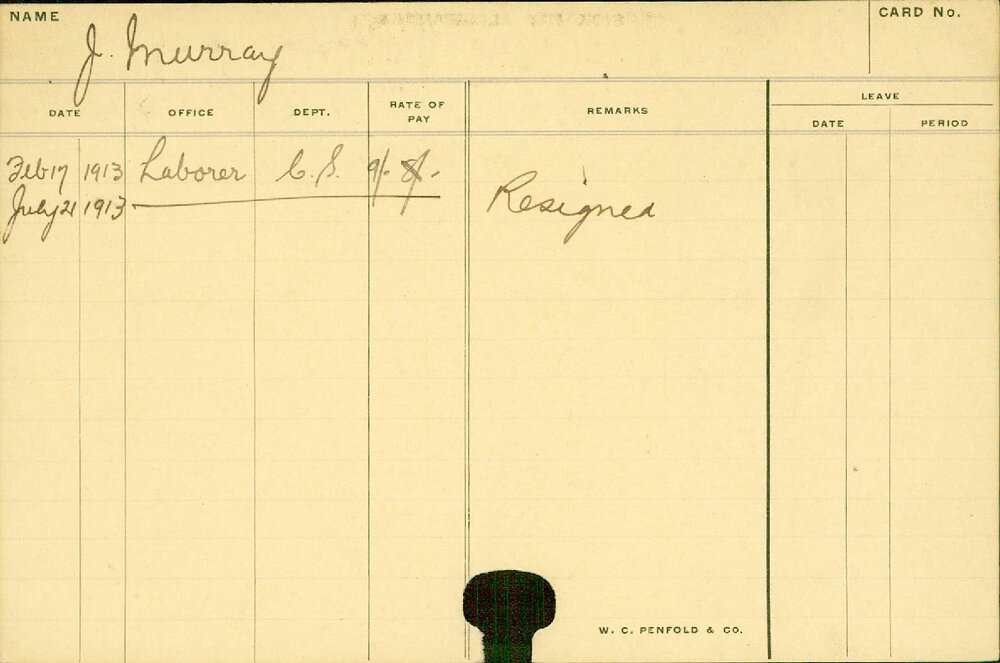 NAME
J. Murray
CARD No.
DATE OFFICE DEPT. RATE OF PAY REMARKS LEAVE
DATE PERIOD
Feb 17 1913 Laborer C.S. 9/- 8/-
July 21 1913 Resigned
W. C. PENFOLD & CO.